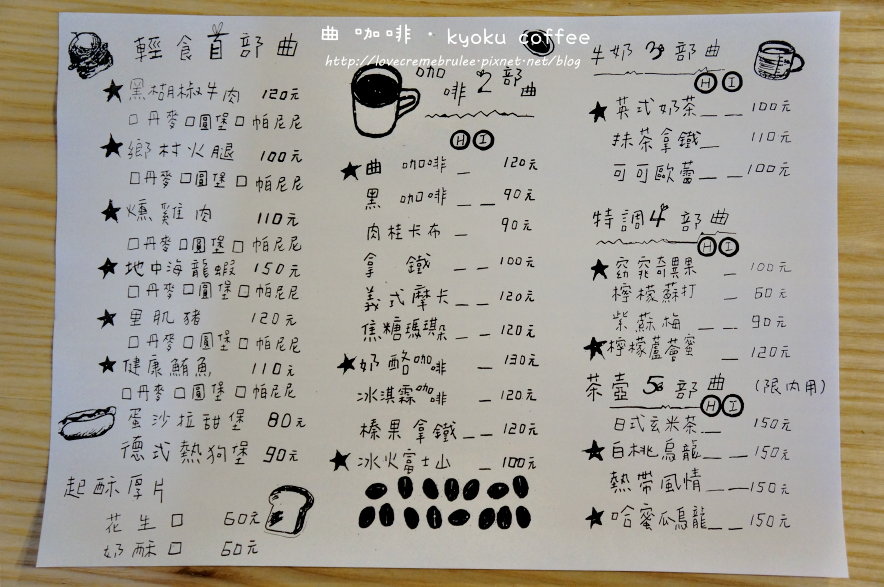 曲 咖啡 · kyoku coffee
http://lovecremebrulee.pixnet.net/blog
輕食首部曲
★黑胡椒牛肉 120元
□丹麥□圓堡□帕尼尼
★鄉村火腿 100元
□丹麥□圓堡□帕尼尼
★燻雞肉 110元
□丹麥□圓堡□帕尼尼
★地中海龍蝦 150元
□丹麥□圓堡□帕尼尼
★里肌豬 120元
□丹麥□圓堡□帕尼尼
★健康鮪魚 110元
□丹麥□圓堡□帕尼尼
蛋沙拉甜堡 80元
德式熱狗堡 90元
起酥厚片
花生□ 60元
奶酥□ 60元
咖啡2部曲
H I
★曲 咖啡 _ 120元
黑 咖啡 _ _ 90元
肉桂卡布 _ 90元
拿 鐵 _ _ 100元
義式摩卡 _ _ 120元
焦糖瑪琪朵 _ _ 120元
★奶酪咖啡 _ 130元
冰淇霖咖啡 _ 120元
榛果拿鐵 _ _ 120元
★冰火富士山 _ 100元
牛奶3部曲
H I
★英式奶茶 _ _ 100元
抹茶拿鐵 _ 110元
可可歐蕾 _ _ 100元
特調4部曲
H I
★窈窕奇異果 _ 100元
檸檬蘇打 _ 60元
紫蘇梅 _ _ 90元
★檸檬蘆薈蜜 _ 120元
茶壺5部曲 (限內用)
H I
日式玄米茶 _ 150元
★白桃烏龍 _ _ 150元
熱帶風情 _ _ 150元
★哈蜜瓜烏龍 _ _ 150元